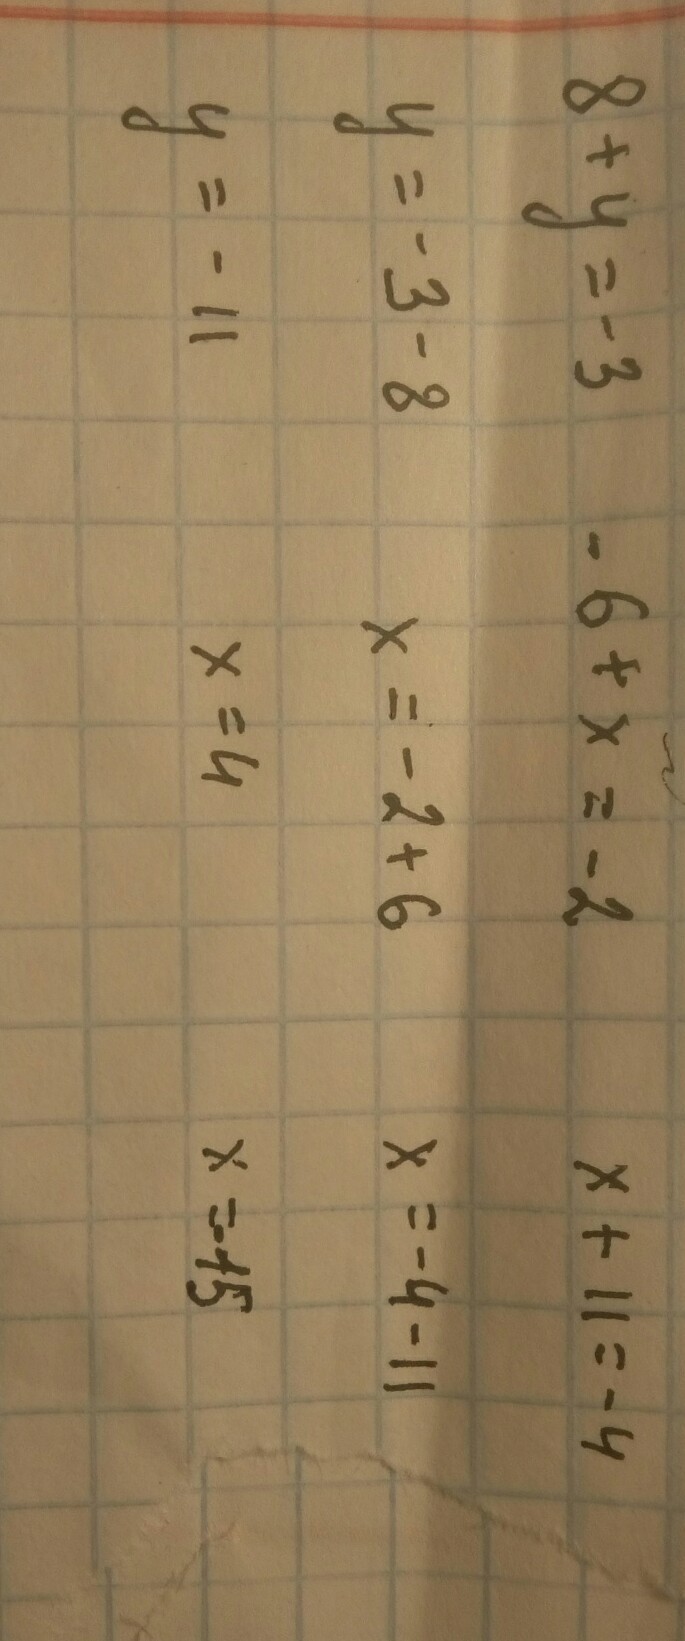 8 + y = -3 -6 + x = -2 x + 11 = -4
y = -3 - 8 x = -2 + 6 x = -4 - 11
y = -11 x = 4 x = -15